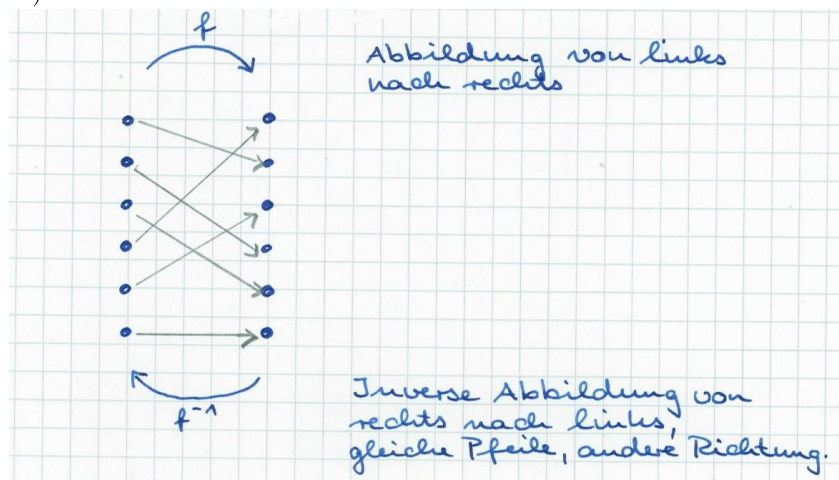 f
Abbildung von links
nach rechts
f⁻¹
Inverse Abbildung von
rechts nach links,
gleiche Pfeile, andere Richtung.